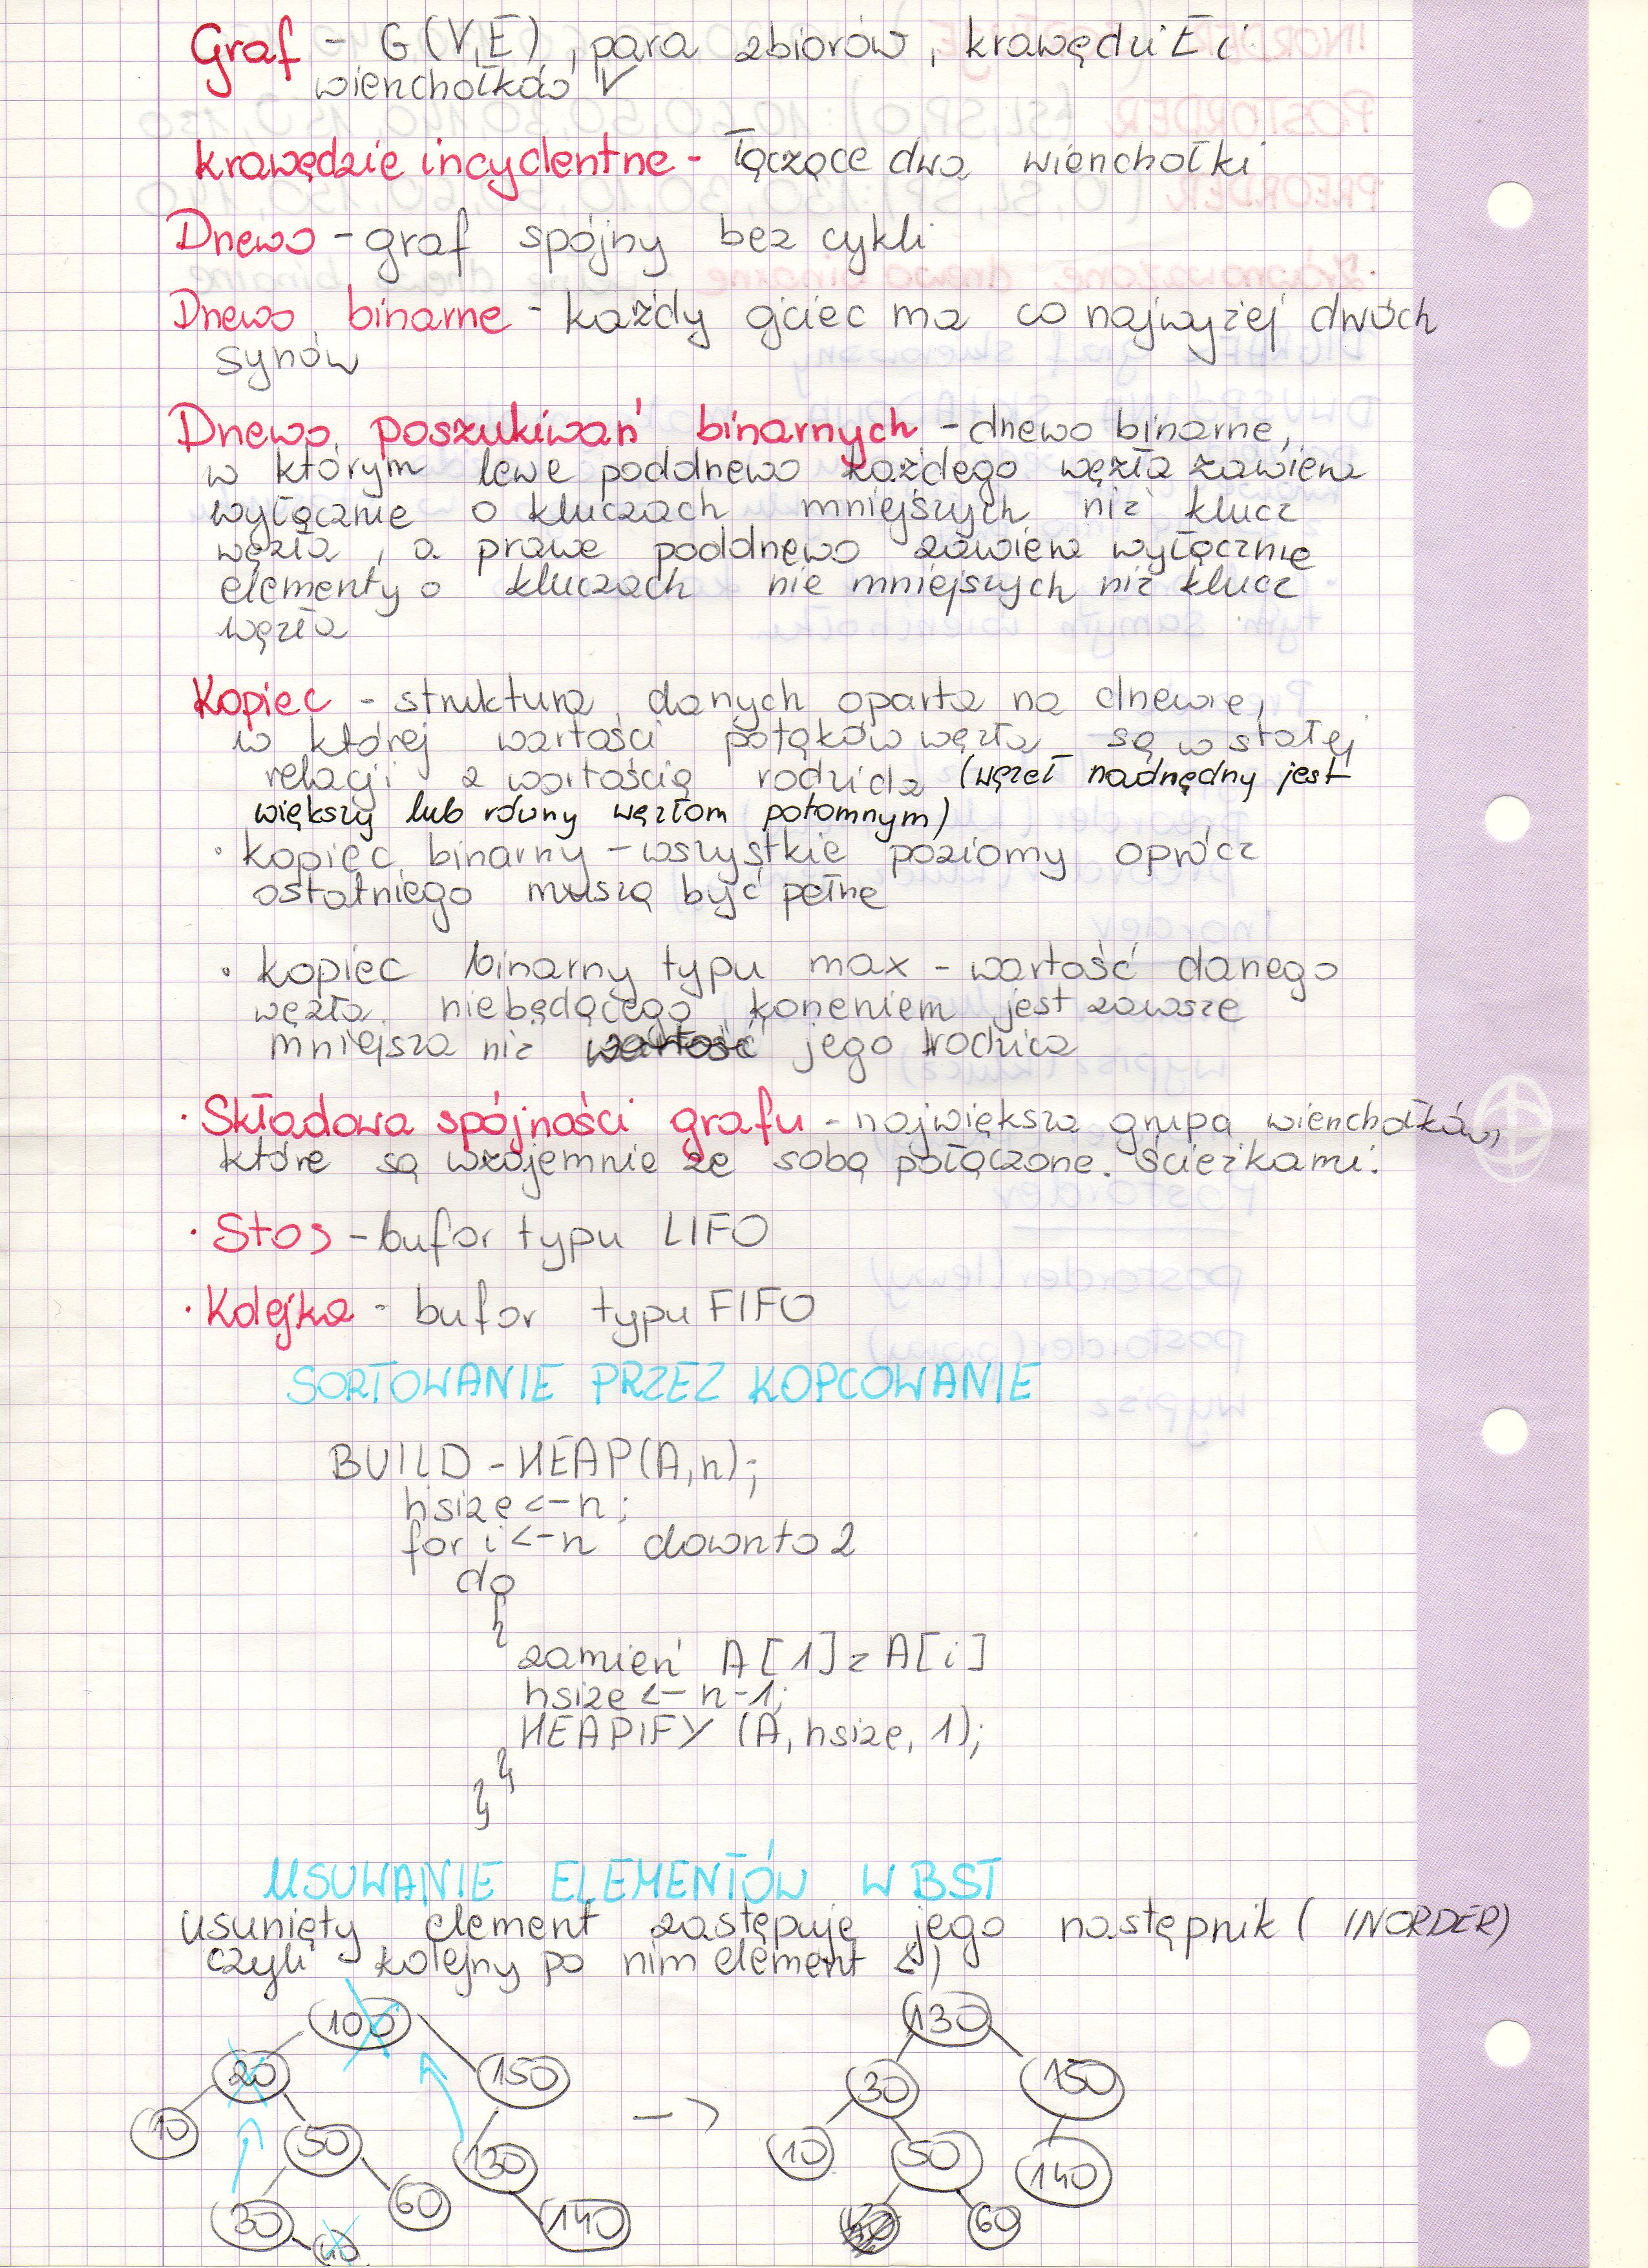 Graf - G(V,E), para zbiorów, krawędzi E i
wierzchołków V
krawędzie incydentne - łączące dwa wierzchołki
Drzewo - graf spójny bez cykli
Drzewo binarne - każdy ojciec ma co najwyżej dwóch
synów
Drzewo poszukiwań binarnych - drzewo binarne,
w którym lewe poddrzewo każdego węzła zawiera
wyłącznie o kluczach mniejszych niż klucz
węzła, a prawe poddrzewo zawiera wyłącznie
elementy o kluczach nie mniejszych niż klucz
węzła
Kopiec - struktura danych oparta na drzewie,
w której wartości potąków węzła są w stałej
relacji z wartością rodzica (węzeł nadrzędny jest
większy lub równy węzłom potomnym)
• kopiec binarny - wszystkie poziomy oprócz
ostatniego muszą być pełne
• kopiec binarny typu max - wartość danego
węzła niebędącego korzeniem jest zawsze
mniejsza niż wartość jego rodzica
• Składowa spójności grafu - największa grupa wierzchołków,
które są wzajemnie ze sobą połączone ścieżkami.
• Stos - bufor typu LIFO
• Kolejka - bufor typu FIFO
SORTOWANIE PRZEZ KOPCOWANIE
BUILD-HEAP(A,n);
hsize <- n;
for i <- n downto 2
do
{
zamień A[1] z A[i]
hsize <- n-1;
HEAPIFY (A, hsize, 1);
}
}
USUWANIE ELEMENTÓW W BST
usunięty element zastępuje jego następnik ( INORDER)
czyli - kolejny po nim element :)
100 130
20 150 -> 30 150
10 50 130 10 50 140
30 60 140 60
40